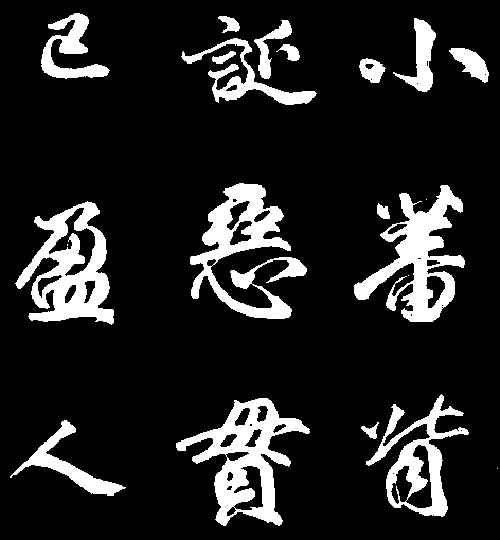 小蕃背
誕惡貫
已盈人